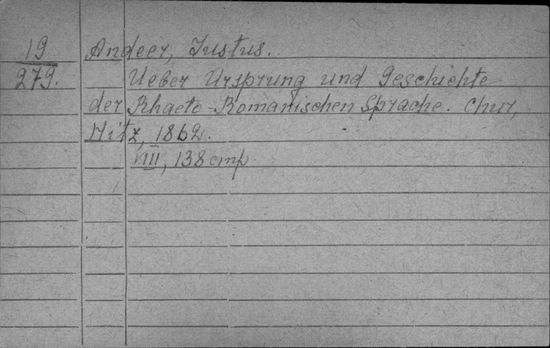 19 Andeer, Justus.
279. Ueber Ursprung und Geschichte
der Rhaeto-Romanischen Sprache. Chur,
Hitz, 1862.
VIII, 138 стр